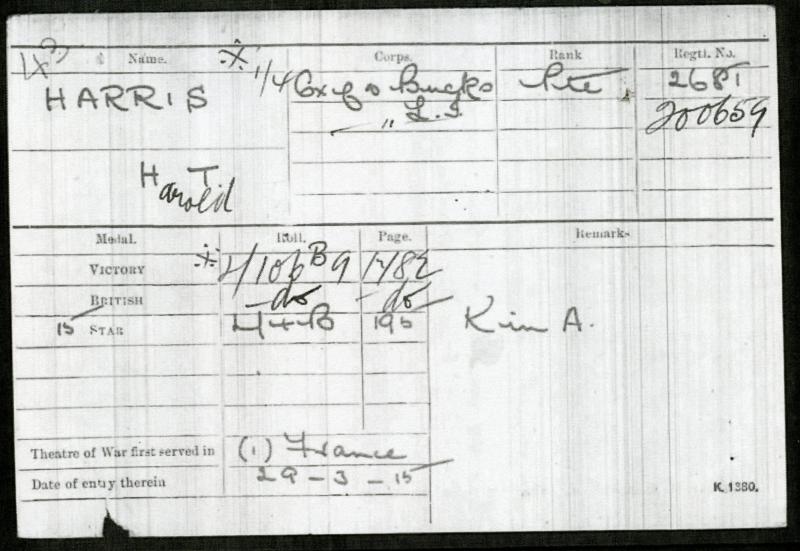 Name. Corps. Rank Regtl. No.
HARRIS ※ 1/4 Ox & Bucks Pte 2681
" L.I. 200659
H T
arold
Medal. Roll. Page. Remarks
VICTORY ※ H/106 B9 1782
BRITISH -do- -do-
15 STAR H/4B 195 Kin A.
Theatre of War first served in (1) France
Date of entry therein 29-3-15
K. 1380.